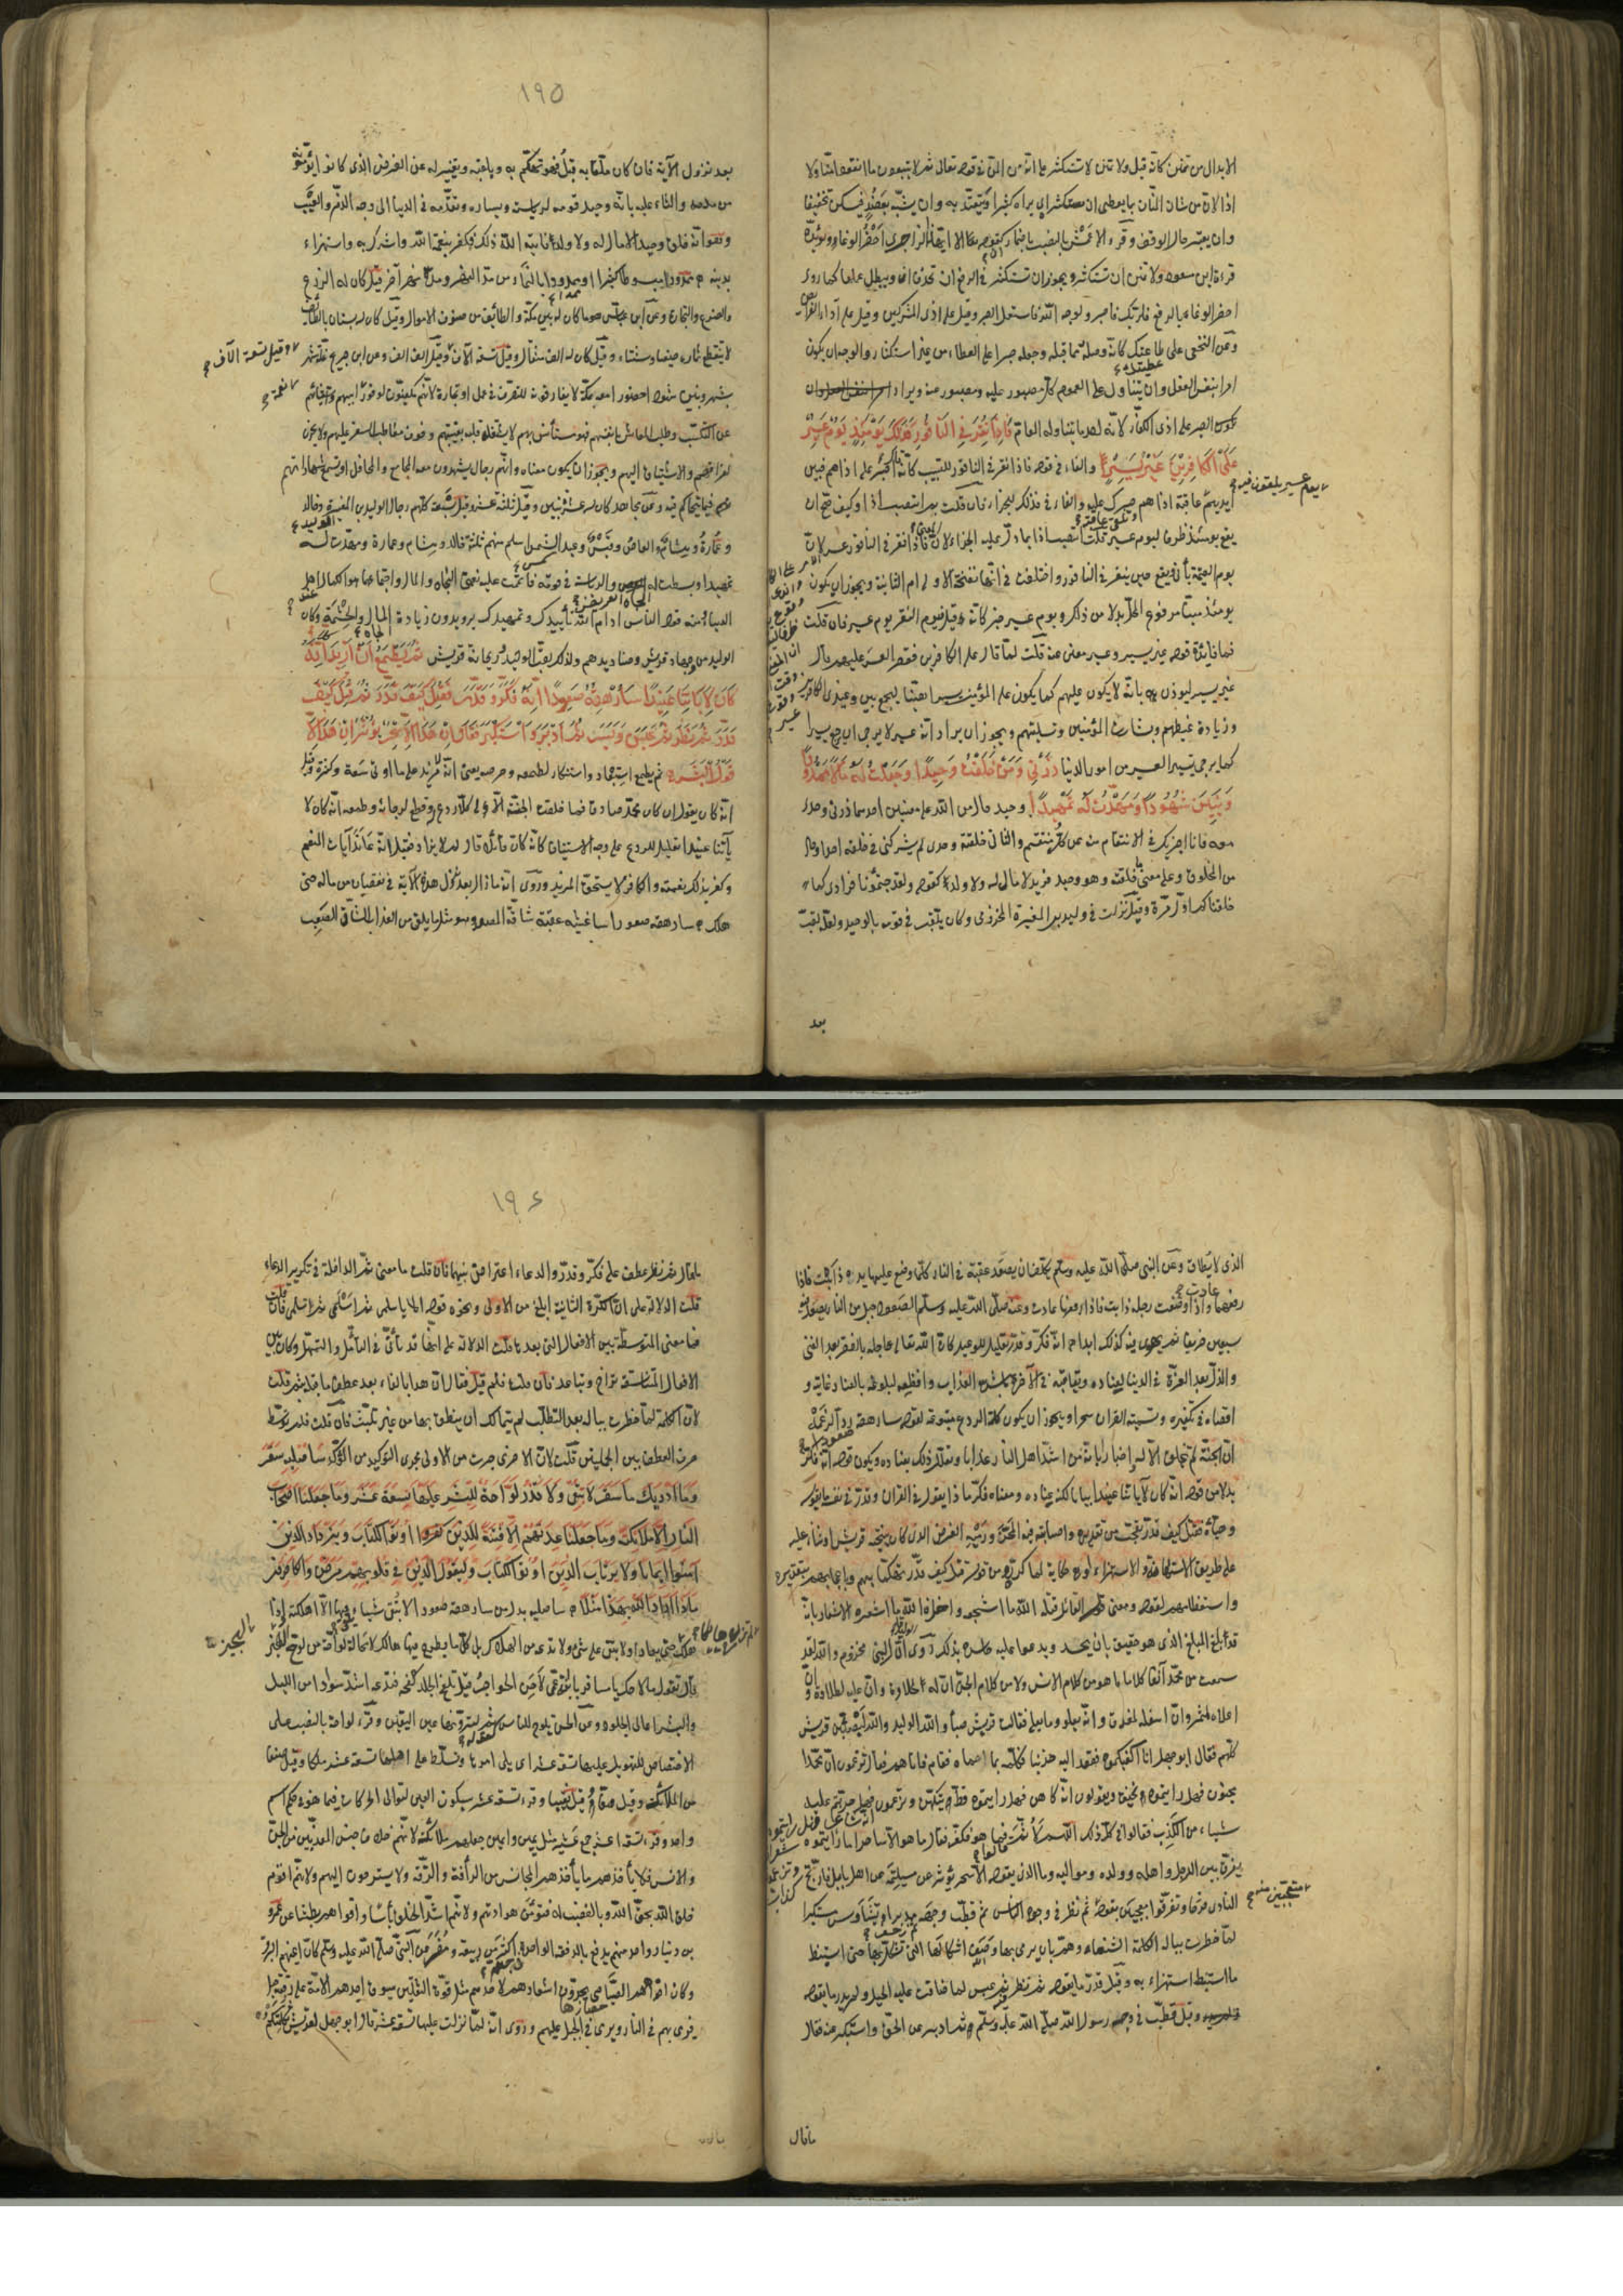 الابدال من تمنن كانه قيل ولا تمنن لا تستكثر على انه من المن في قوله تعالى ثم لا يتبعون ما انفقوا منا ولا
اذا لان من شان المنان بما يعطى ان يستكثر اي يراه كثيرا ويعتد به وان يشبه بعضد فيسكن تخفيفا
وان يعتبر حال الوقف وقرء الاعمش بالنصب باضمار ان كقوله الا ايهذا الزاجري احضر الوغا ويؤيده
قراءة ابن مسعود ولا تمنن ان تستكثر ويجوز ان تستكثر في الرفع ان تحذف ان ويبطل عملها كما روى
احضر الوغاء بالرفع فلربك فاصبر ولوجه الله فاستعمل الصبر وقيل على اذى المشركين وقيل على آداء الفرائض
وعن النخعى على عطيتك كانه وصله بما قبله وجعله صبرا على العطاء من غير استكثار والوجه ان يكون
امرا بنفس الفعل وان يتناول على العموم كل مصبور عليه ومصبور عنه ويراد
الصبر على اذى الكفار لانه احد ما يتناوله العام فَاِذَا نُقِرَ فِي النَّاقُورِ فَذٰلِكَ يَوْمَئِذٍ يَوْمٌ عَسِيرٌ
عَلَى الْكَافِرِينَ غَيْرُ يَسِيرٍ والفاء في قوله فاذا نقر في الناقور للتسبيب كانه قيل اصبر على اذاهم فبين
يوم عسير يلقون فيه
ايديهم عاقبة اذاهم وتلقى عاقبة صبرك عليه والفاء في فذلك للجزاء فان قلت بم انتصب اذا وكيف صح ان
يقع يومئذ ظرفا ليوم عسير قلت انتصب اذا بما دل عليه الجزاء لان المعنى فاذا نقر في الناقور عسر الامر على الكافرين
يوم القيمة يأتى ويقع حين ينقر في الناقور واختلف في انها النفخة الاولى ام الثانية ويجوز ان يكون
يومئذ مبنيا مرفوع المحل بدلا من ذلك ويوم عسير خبر كانه قيل فيوم النقر يوم عسير فان قلت
فما فائدة قوله غير يسير وعسير مغن عنه قلت لما قال على الكافرين فقصر العسر عليهم قال
غير يسير ليوذن بانه لا يكون عليهم كما يكون على المؤمنين يسيرا هينا ليجمع بين وعيد الكافرين
وزيادة غيظهم وبشارة المؤمنين وتسليتهم ويجوز ان يراد انه عسير لا يرجى ان يرجع يسيرا
كما يرجى تيسير العسير من امور الدنيا ذَرْنِي وَمَنْ خَلَقْتُ وَحِيدًا وَجَعَلْتُ لَهُ مَالًا مَمْدُودًا
وَبَنِينَ شُهُودًا وَمَهَّدْتُ لَهُ تَمْهِيدًا وحيدا حال من الله على معنيين احدهما ذرنى وحدى
معه فانا اجزيك في الانتقام منه عن كل منتقم والثانى خلقته وحدى لم يشركنى في خلقه احد او حال
من المخلوق على معنى خلقته وهو وحيد فريد لا مال له ولا ولد كقوله ولقد جئتمونا فرادى كما
خلقناكم اول مرة وقيل نزلت في وليد بن المغيرة المخزومى وكان يلقب في قومه بالوحيد ولعله لقب
بعد
١٩٥
بعد نزول الآية فان كان ملقبا به قبل فهو تهكم به وبلقبه وتغيير له عن الغرض الذى كانوا يؤمونه
من مدحه والثناء عليه بانه وحيد قومه لرياسته ويساره وتقدمه في الدنيا الى وجه الذم والعيب
وهو انه خلق وحيدا لا مال له ولا ولد فآتاه الله ذلك فكفر بنعمة الله واشرك به واستهزاء
بدينه ممدودا مبسوطا كثيرا او ممدودا بالنماء من مد النهر ومده نهر آخر قيل كان له الزرع
والضرع والتجارة وعن ابن عباس هو ما كان له بين مكة والطائف من صنوف الاموال وقيل كان له بستان بالطائف
لا ينقطع ثماره صيفا وشتاء وقيل كان له الف مثقال وقيل ستة آلاف وقيل الف الف وعن ابن جريج غلة شهر
وقيل تسعة آلاف
بشهر وبنين شهودا حضورا معه بمكة لا يفارقونه للتصرف في عمل او تجارة لانهم مكفيون لوفور نعمة ابيهم واستغنائهم
عن التكسب وطلب المعاش بانفسهم فهو مستأنس بهم لا يشتغل قلبه بغيبتهم وخوف معاطب السفر عليهم ولا يحزن
لفراقهم والاشتياق اليهم ويجوز ان يكون معناه وانهم رجال يشهدون معه المجامع والمحافل او تسمع شهاداتهم
فيما يتحاكم فيه وعن مجاهد كان له عشرة بنين وقيل ثلثة عشر وقيل سبعة كلهم رجال الوليد بن الوليد وخالد
وعمارة وهشام والعاص وقيس وعبد الشمس اسلم منهم ثلثة خالد وهشام وعمارة ومهدت له
تمهيدا وبسطت له الجاه العريض والرياسة في قومه فاتممت عليه نعمتى الجاه والمال واجتماعهما هو الكمال عند اهل
الدنيا ومنه قول الناس ادام الله تأييدك وتمهيدك يريدون زيادة الجاه والحشمة وكان
الوليد من وجهاء قريش وصناديدهم ولذلك لقب الوحيد وريحانة قريش ثُمَّ يَطْمَعُ اَنْ اَزِيدَ كَلَّا اِنَّهُ
كَانَ لِآيَاتِنَا عَنِيدًا سَاُرْهِقُهُ صَعُودًا اِنَّهُ فَكَّرَ وَقَدَّرَ فَقُتِلَ كَيْفَ قَدَّرَ ثُمَّ قُتِلَ كَيْفَ
قَدَّرَ ثُمَّ نَظَرَ ثُمَّ عَبَسَ وَبَسَرَ ثُمَّ اَدْبَرَ وَاسْتَكْبَرَ فَقَالَ اِنْ هٰذَا اِلَّا سِحْرٌ يُؤْثَرُ اِنْ هٰذَا اِلَّا
قَوْلُ الْبَشَرِ ثم يطمع استبعاد واستنكار لطمعه وحرصه يعنى انه لا مزيد على ما اوتى سعة وكثرة وقيل
انه كان يقول ان كان محمد صادقا فما خلقت الجنة الا لى كلا ردع وقطع لرجائه وطمعه انه كان لا
ياتنا عنيدا تعليل للردع على وجه الاستيناف كانه كان قائلا قال لم لا يزاد فقيل انه عاند آيات المنعم
وكفر بذلك بنعمته والكافر لا يستحق المزيد وروى انه ما زال بعد نزول هذه الآية في نقصان من ماله حتى
هلك سارهقه صعودا ساغشيه عقبة شاقة المصعد وهو مثل لما يلقى من العذاب الشاق الصعب
الذى لا يطاق وعن النبى صلى الله عليه وسلم يكلف ان يصعد عقبة في النار كلما وضع عليها يده ذابت فاذا
رفعها عادت واذا وضعت رجله ذابت فاذا رفعها عادت وعنه صلى الله عليه وسلم الصعود جبل من النار يصعد فيه
سبعين خريفا ثم يهوى فيه كذلك ابدا انه فكر وقدر تعليل للوعيد كان الله تعالى عاجله بالفقر بعد الغنى
والذل بعد العزة في الدنيا لعناده ويعاقبه في الآخرة باشد العذاب وافظعه لبلوغه بالعناد غايته و
اقصاه في تفكيره وتسميته القران سحرا ويجوز ان يكون كلمة الردع متبوعة بقوله سارهقه صعودا ردا لزعمه
ان الجنة لم تخلق الا له واخبارا بانه من اشد اهل النار عذابا وتعلل ذلك بعناده ويكون قوله انه فكر
بدلا من قوله انه كان لآياتنا عنيدا بيانا لكنه عناده ومعناه فكر ماذا يقول في القران وقدر في نفسه ما يقول
وهيأه فقتل كيف قدر تعجب من تقديره واصابته فيه المحز ورميه الغرض الذى كان ينتحيه قريش او ثناء عليه
على طريق الاستهزاء او حكاية لما كرروه من قولهم قتل كيف قدر تهكما بهم وباعجابهم بتقديره
واستعظامهم لقوله ومعنى قول القائل قتله الله ما اشجعه واخزاه الله ما اشعره الاشعار بانه
قد بلغ المبلغ الذى هو حقيق بان يحسد ويدعو عليه حاسده بذلك روى ان الوليد قال لبنى مخزوم والله لقد
سمعت من محمد آنفا كلاما ما هو من كلام الانس ولا من كلام الجن ان له لحلاوة وان عليه لطلاوة وان
اعلاه لمثمر وان اسفله لمغدق وانه يعلو وما يعلى فقالت قريش صبأ والله الوليد والله ليصبأن قريش
كلهم فقال ابو جهل انا اكفيكموه فقعد اليه حزينا وكلمه بما احماه فقام فاتاهم فقال تزعمون ان محمدا
مجنون فهل رايتموه يخنق وتقولون انه كاهن فهل رايتموه قط يتكهن وتزعمون
انه شاعر فهل رايتموه
شيئا من الكذب فقالوا في كل ذلك اللهم لا ثم قالوا فما هو ففكر فقال ما هو الا ساحر اما رايتموه
يفرق بين الرجل واهله وولده ومواليه وما الذى يقوله الا سحر يؤثر عن مسيلمة وعن اهل بابل فارتج
النادى فرحا وتفرقوا معجبين بقوله ثم نظر في وجوه الناس ثم قطب وجهه
متعجبين منه
لما خطرت بباله الكلمة الشنعاء وهم بان يرمى بها
ما استنبط استهزاء به وقيل قدر ما يقوله ثم نظر فيه ثم عبس لما ضاقت عليه الحيل ولم يدر ما يقول
وقيل قطب في وجه رسول الله صلى الله عليه وسلم ثم ادبر عن الحق واستكبر عنه فقال
ماقال
١٩٦
ماقال ثم نظر عطف على فكر وقدر والدعاء اعتراض بينهما فان قلت ما معنى ثم الداخلة في تكرير الدعاء
قلت الدلالة على ان الكرة الثانية ابلغ من الاولى ونحوه قوله الا يا اسلمى ثم اسلمى ثم اسلمى فان قلت
فما معنى المتوسطة بين الافعال التى بعدها قلت الدلالة على انه قد تأنى في التأمل والتمهل وكان بين
الافعال المتناسقة تراخ وتباعد فان قلت فلم قيل فقال ان هذا بالفاء بعد عطف ما قبله بثم قلت
لان الكلمة لما خطرت بباله بعد التطلب لم يتمالك ان ينطق بها من غير تلبث فان قلت فلم لم توسط
حرف العطف بين الجملتين قلت لان الاخرى جرت من الاولى مجرى التوكيد من المؤكد سَاُصْلِيهِ سَقَرَ
وَمَا اَدْرٰيكَ مَا سَقَرُ لَا تُبْقِي وَلَا تَذَرُ لَوَّاحَةٌ لِلْبَشَرِ عَلَيْهَا تِسْعَةَ عَشَرَ وَمَا جَعَلْنَا اَصْحَابَ
النَّارِ اِلَّا مَلَائِكَةً وَمَا جَعَلْنَا عِدَّتَهُمْ اِلَّا فِتْنَةً لِلَّذِينَ كَفَرُوا اُوتُوا الْكِتَابَ وَيَزْدَادَ الَّذِينَ
آمَنُوا اِيمَانًا وَلَا يَرْتَابَ الَّذِينَ اُوتُوا الْكِتَابَ وَلِيَقُولَ الَّذِينَ فِي قُلُوبِهِمْ مَرَضٌ وَالْكَافِرُونَ
مَاذَا اَرَادَ اللهُ بِهٰذَا مَثَلًا ساصليه بدل من سارهقه صعودا لا تبقى شيئا يلقى فيها الا اهلكته واذا
هلك لم تذره هالكا حتى يعاد او لا تبقى على شىء ولا تدعه من الهلاك بل كل ما يطرح فيها هالك لا محالة لواحة من لوح الهجير
بالهجير
قال تقول ما لاحك يا مسافر يا بنة عمى لاحنى الهواجر قيل تلفح الجلد لفحة فتدعه اشد سوادا من الليل
والبشر اعالى الجلود وعن الحسن تلوح للناس كقوله ثم لترونها عين اليقين وقرء لواحة بالنصب على
الاختصاص للتهويل عليها تسعة عشر اى يلى امرها وتسلط على اهلها تسعة عشر ملكا وقيل صنفا
من الملائكة وقيل صفا وقيل نقيبا وقرء تسعة عشر بسكون العين لتوالى الحركات فيما هو في حكم اسم
واحد وقرء تسعة اعشر جمع عشير مثل يمين وايمن جعلهم ملائكة لانهم خلاف جنس المعذبين من الجن
والانس فلا يأخذهم ما يأخذ المجانس من الرأفة والرقة ولا يستروحون اليهم ولانهم اقوم
خلق الله بحق الله وبالغضب له فتؤمن هوادتهم ولانهم اشد الخلق بأسا واقواهم بطشا عن عمرو
بن دينار واحد منهم يدفع بالدفعة الواحدة في جهنم اكثر من ربيعة ومضر وعن النبى صلى الله عليه وسلم كان اعينهم البرق
وكان افواههم الصياصى يجرون اشعارهم لاحدهم مثل قوة الثقلين يسوق احدهم الامة على رقبته جبل
فيرمى بهم في النار ويرمى بالجبل عليهم وروى انه لما نزلت عليها تسعة عشر قال ابو جهل لقريش ثكلتكم